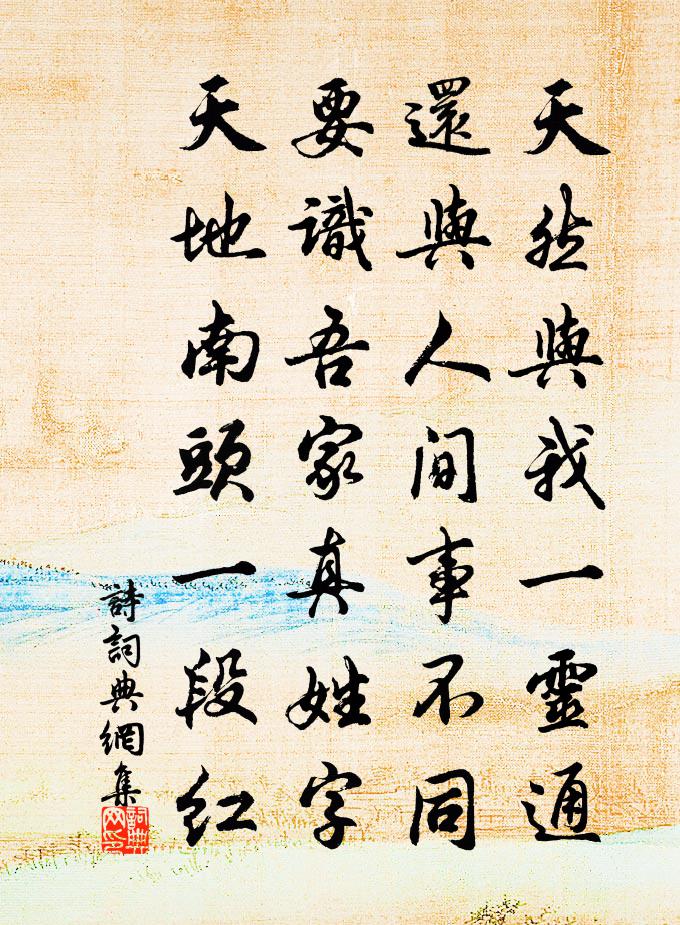 天然與我一靈通
還與人間事不同
要識吾家真姓字
天地南頭一段紅
詩詞典網集
詞典网印